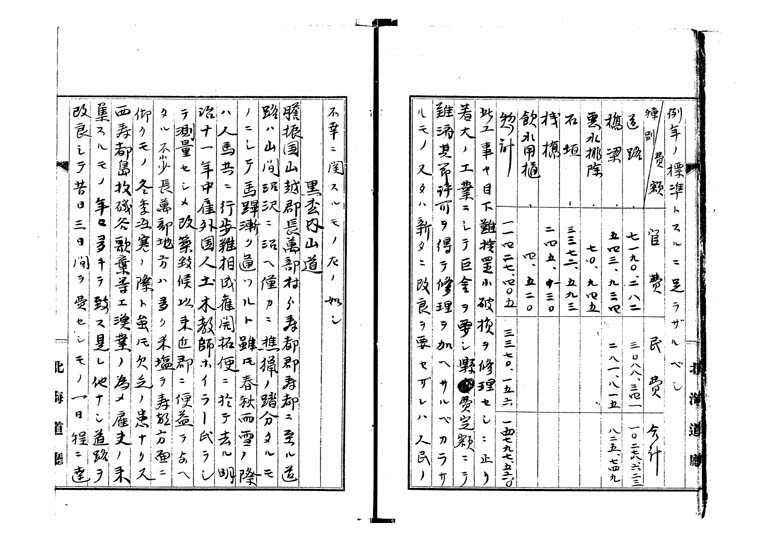 例年ノ標準トスルニ足ラザルベシ
種別 費額 官費 民費 合計
道路 七一九〇、二八二 三〇八八、三四一 一〇二七八、六二三
橋梁 五四三、九三四 二八一、八一五 八二五、七四九
悪水排除 七〇、九四五
石垣 三三七二、五九三
桟橋 二四五、
飲水用樋 四、五二〇
総計 一一四二七、四〇五 三三七〇、一五六 一四七九七、五六〇
此工事ヤ目下難捨置小破損ヲ修理セシニ止リ
著大ノ工業ニシテ巨金ヲ要シ県費定額ニテ
難済其節許可ヲ得テ修理ヲ加ヘサルベカラサ
ルモノ又タハ新タニ改良ヲ要セザレハ人民ノ
不幸ニ関スルモノ左ノ如シ
黒松内山道
胆振国山越郡長萬部村ヨリ寿都郡寿都ニ至ル道
路ハ山間沼沢ニ沿ヘ僅カニ樵猟ノ踏分タルモ
ノニシテ馬蹄漸ク通ツルト雖モ春秋雨雪ノ際
ハ人馬共ニ行歩難相成舊開拓使ニ於テ去ル明
治十一年中雇外国人土木教師ホイラー氏ヲシ
テ測量セシメ改築致候以来近郡ニ便益ヲ与ヘ
タル不少長萬部地方ハ多ク米塩ヲ寿都方面ニ
仰クモノ冬季沍寒ノ際ト虽モ欠乏ノ患ナク又
西寿都島牧磯谷歌棄等エ漁業ノ為メ雇夫ノ来
集スルモノ年々多キヲ致ス是レ他ナシ道路ヲ
改良シテ昔日三日間ヲ費セシモノ一日程ニ達
北海道廳
北海道廳